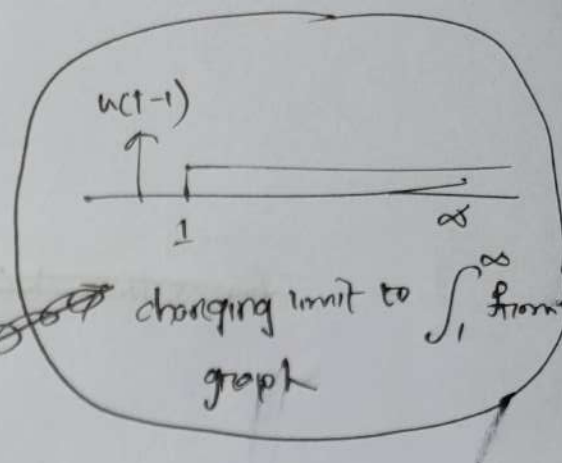 u(t-1)
1 ∞
changing limit to ∫₁^∞ from
graph